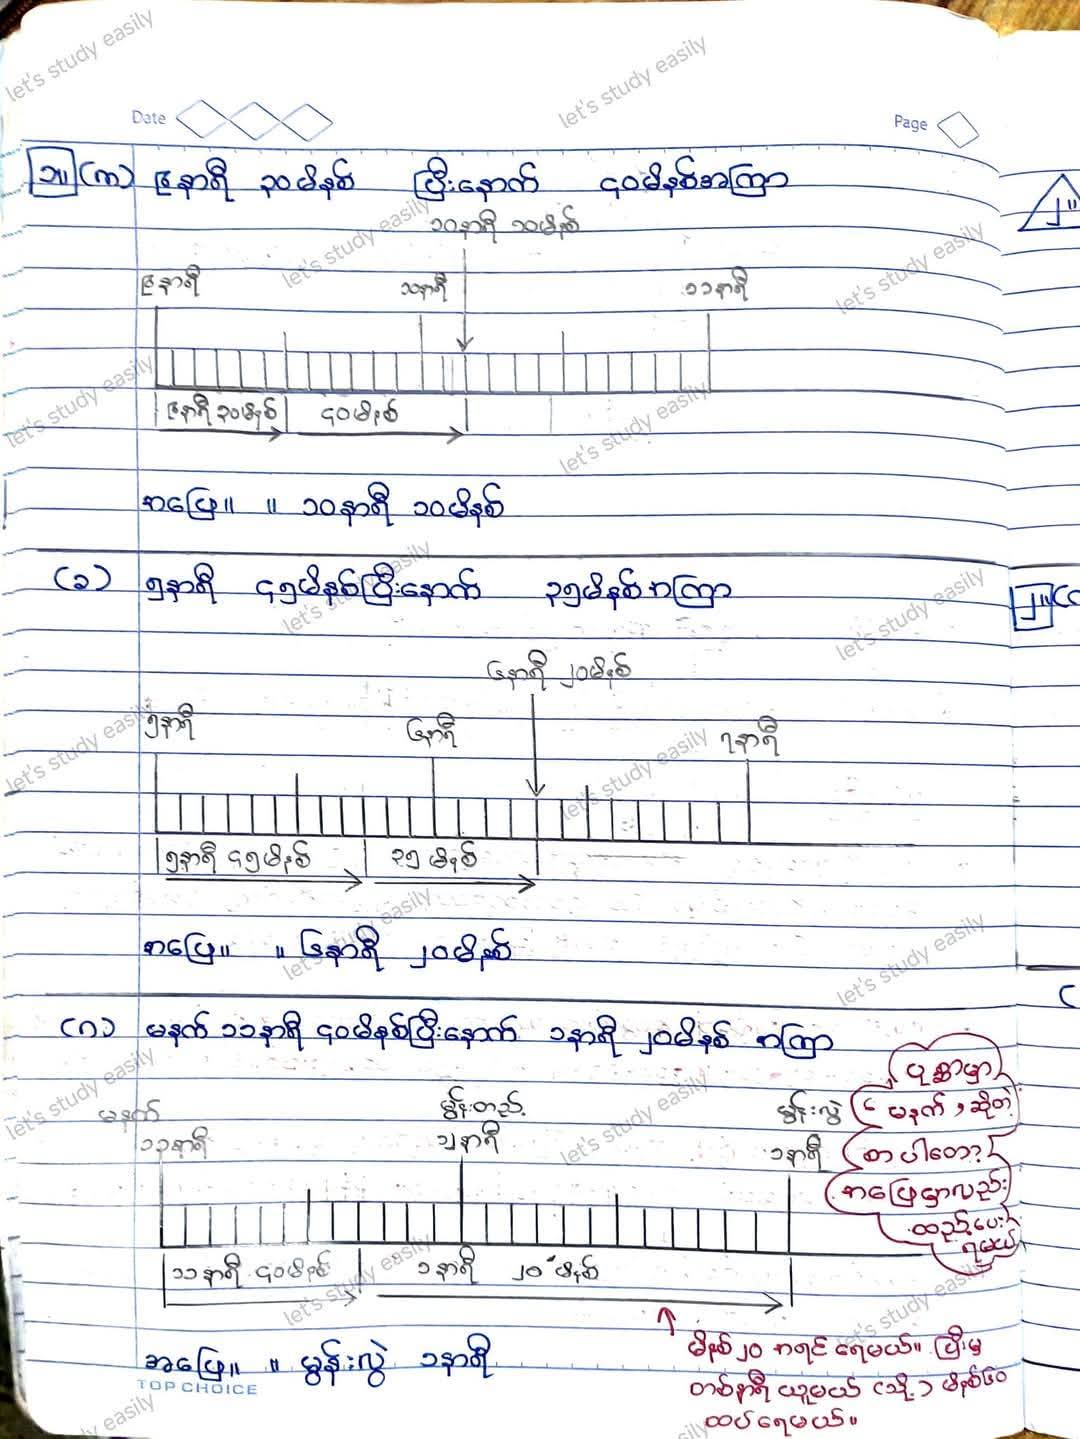 let's study easily
let's study easily
Date
Page
၁။ (က) ၉နာရီ ၃၀မိနစ် ပြီးနောက် ၄၀မိနစ်အကြာ
၁၀နာရီ ၁၀မိနစ်
let's study easily
let's study easily
၂။
၉နာရီ ၁၀နာရီ ၁၁နာရီ
let's study easily
let's study easily
၉နာရီ ၃၀မိနစ် ၄၀မိနစ်
အဖြေ။ ။ ၁၀နာရီ ၁၀မိနစ်
(ခ) ၅နာရီ ၄၅မိနစ်ပြီးနောက် ၃၅မိနစ်အကြာ
let's study easily
let's study easily
၂။(
၆နာရီ ၂၀မိနစ်
၅နာရီ ၆နာရီ ၇နာရီ
let's study easily
let's study easily
၅နာရီ ၄၅မိနစ် ၃၅မိနစ်
အဖြေ။ ။ ၆နာရီ ၂၀မိနစ်
let's study easily
let's study easily
(ဂ) မနက် ၁၁နာရီ ၄၀မိနစ်ပြီးနောက် ၁နာရီ ၂၀မိနစ် အကြာ
ပုစ္ဆာမှာ
မနက် မွန်းတည့် မွန်းလွဲ မနက် , ဆိုတဲ့
၁၁နာရီ ၁၂နာရီ ၁နာရီ စာပါတော့
let's study easily
let's study easily
အဖြေမှာလည်း
ထည့်ပေး
ရမယ်
၁၁နာရီ ၄၀မိနစ် ၁နာရီ ၂၀မိနစ်
let's study easily
let's study easily
အဖြေ။ ။ မွန်းလွဲ ၁နာရီ
မိနစ်၂၀ အရင် ရေမယ်။ ပြီးမှ
တစ်နာရီ ယူမယ် (သို့) မိနစ်၆၀
ထပ်ရေမယ်။
TOP CHOICE
easily
sily